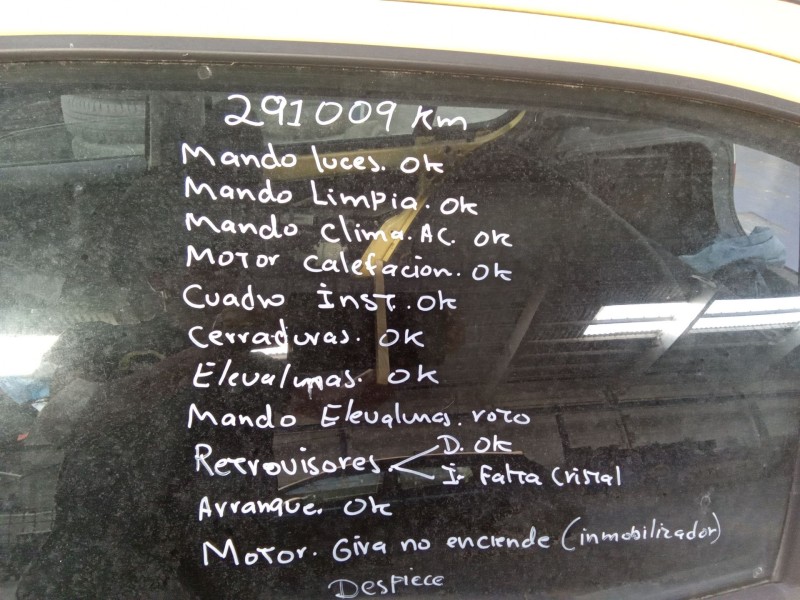 291009 Km
Mando luces. OK
Mando Limpia. OK
Mando Clima. AC. OK
Motor calefacion. OK
Cuadro inst. OK
Cerraduras. OK
Elevalunas. OK
Mando Elevalunas. roto
Retrovisores D. OK
I. Falta Cristal
Arranque. OK
Motor. Gira no enciende (inmobilizador)
Despiece